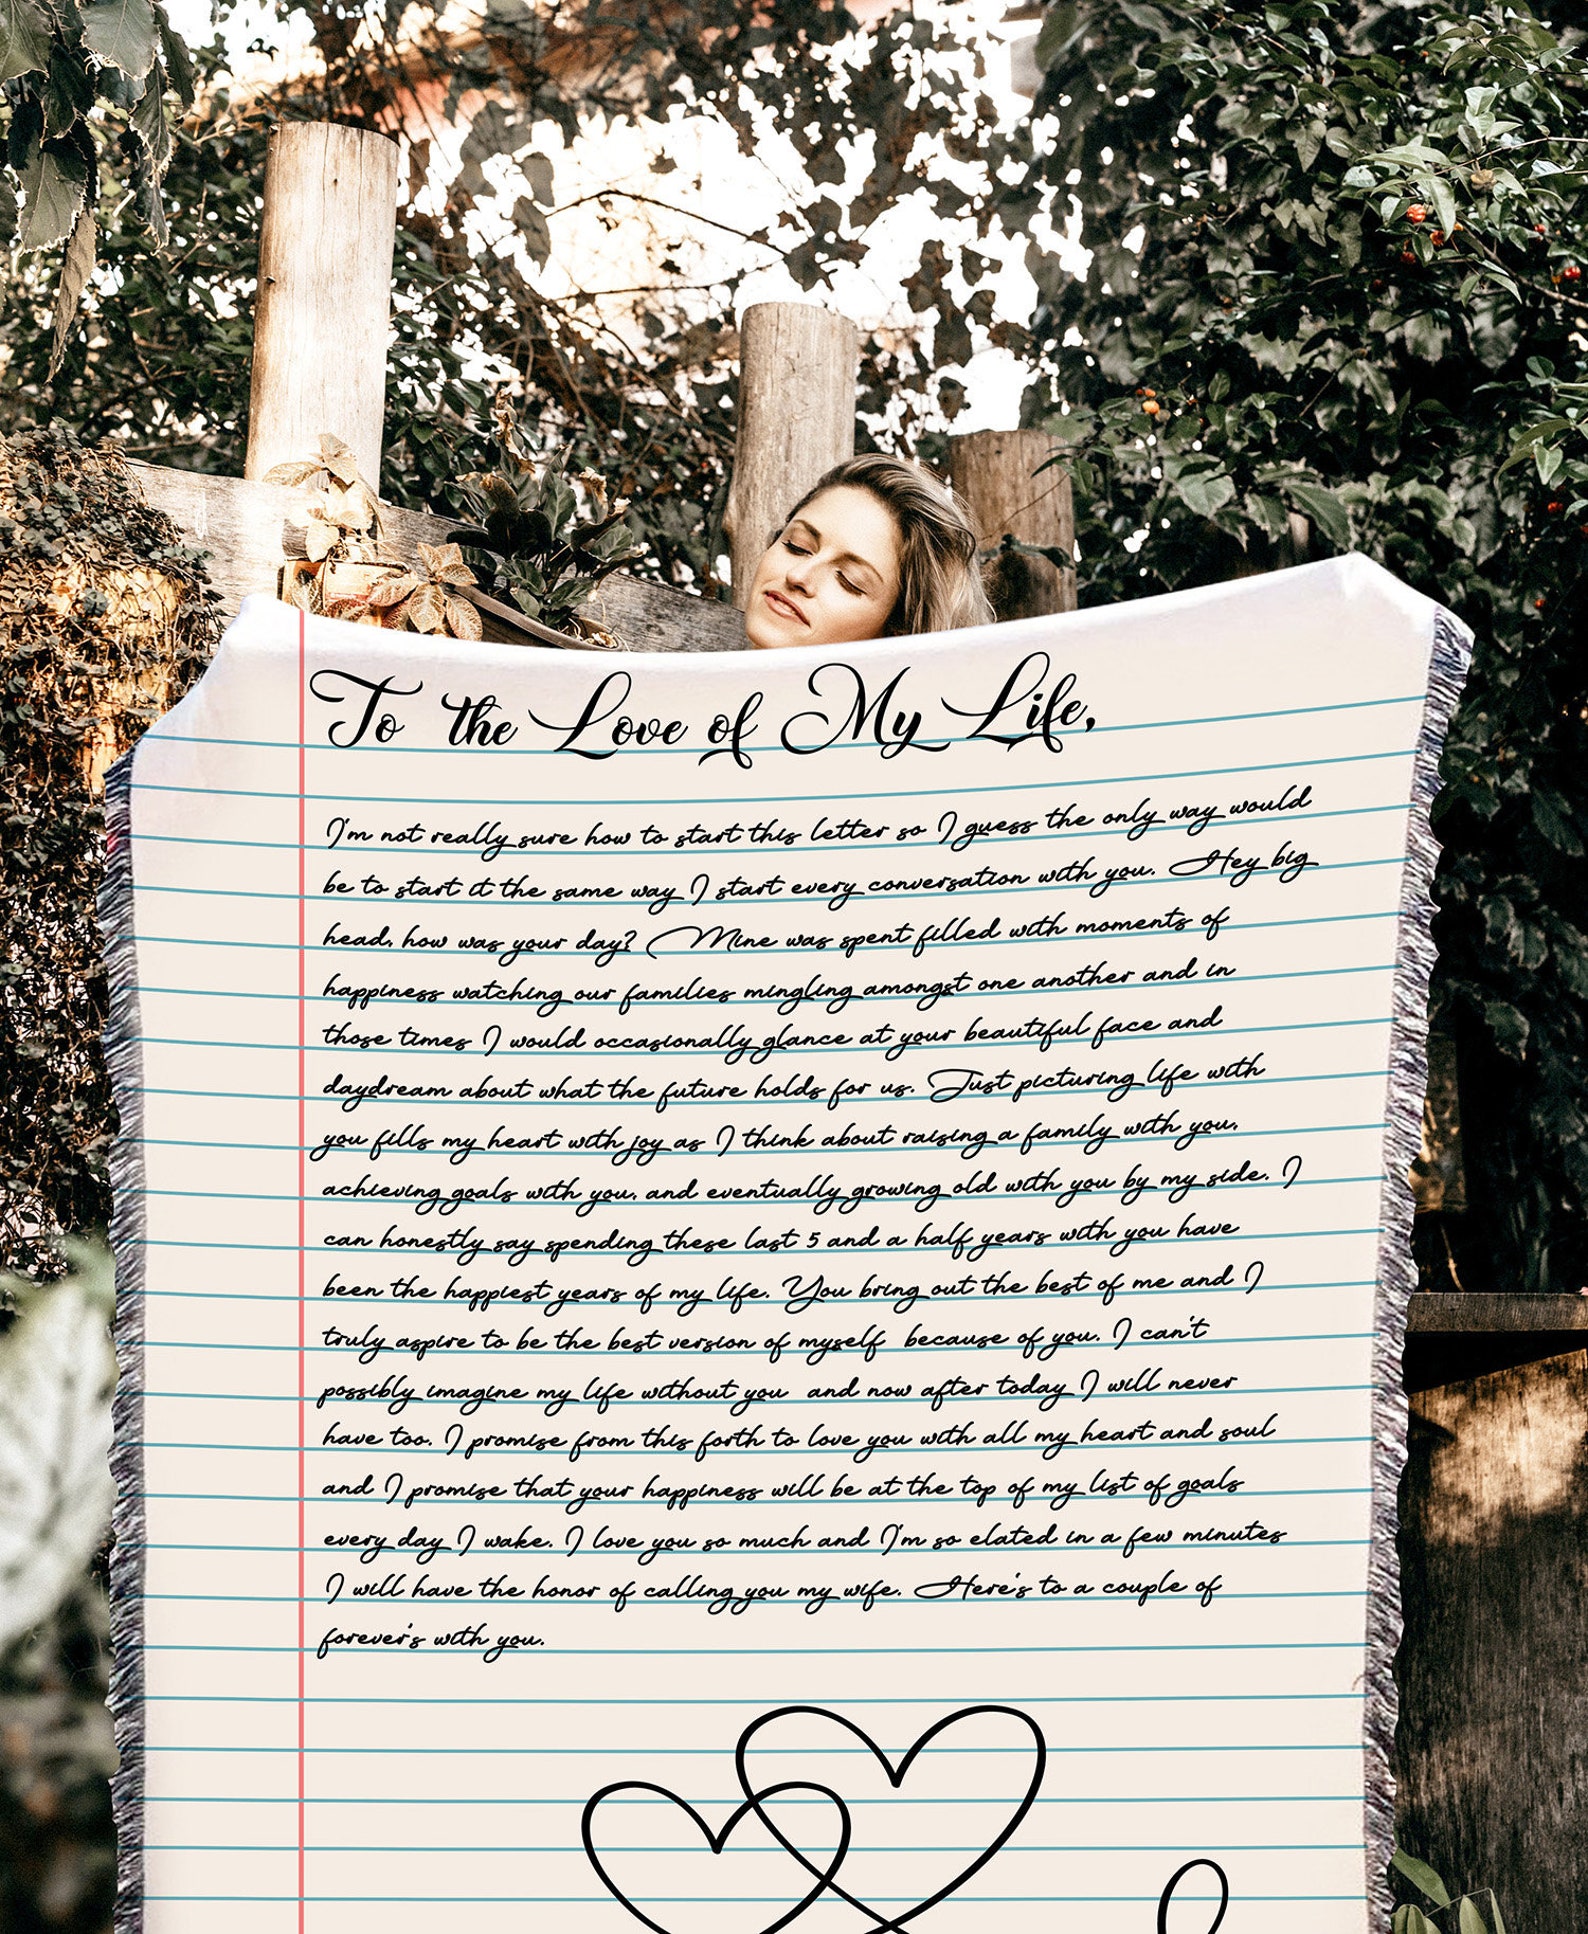 To the Love of My Life,
I'm not really sure how to start this letter so I guess the only way would
be to start it the same way I start every conversation with you. Hey big
head, how was your day? Mine was spent filled with moments of
happiness watching our families mingling amongst one another and in
those times I would occasionally glance at your beautiful face and
daydream about what the future holds for us. Just picturing life with
you fills my heart with joy as I think about raising a family with you,
achieving goals with you, and eventually growing old with you by my side. I
can honestly say spending these last 5 and a half years with you have
been the happiest years of my life. You bring out the best of me and I
truly aspire to be the best version of myself because of you. I can't
possibly imagine my life without you and now after today I will never
have too. I promise from this forth to love you with all my heart and soul
and I promise that your happiness will be at the top of my list of goals
every day I wake. I love you so much and I'm so elated in a few minutes
I will have the honor of calling you my wife. Here's to a couple of
forever's with you.